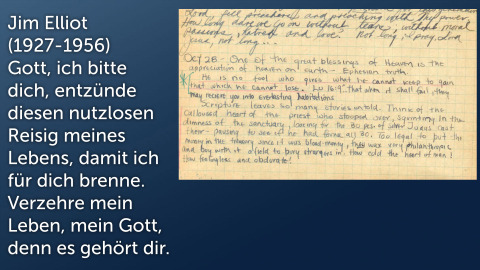 Jim Elliot
(1927-1956)
Gott, ich bitte
dich, entzünde
diesen nutzlosen
Reisig meines
Lebens, damit ich
für dich brenne.
Verzehre mein
Leben, mein Gott,
denn es gehört dir.
passions, hatreds and love. Not long, I pray, Lord
Jesus, not long...
OCT 28 - One of the great blessings of Heaven is the
appreciation of heaven on earth - Ephesian truth.
He is no fool who gives what he cannot keep to gain
that which he cannot lose. Lu 16:9 "that when it shall fail, they
may receive you into everlasting habitations
Scripture leaves so many stories untold. Think of the
calloused heart of the priest who stooped over, squinting in the
dimness of the sanctuary, looking for the 30 pcs of silver Judas cast
there - pausing to see if he had found all 30. Too legal to put the
money in the treasury since it was blood money, they were very philanthropic
and buy with it a field to bury strangers in. How cold the heart of man!
How feelingless and obdurate!